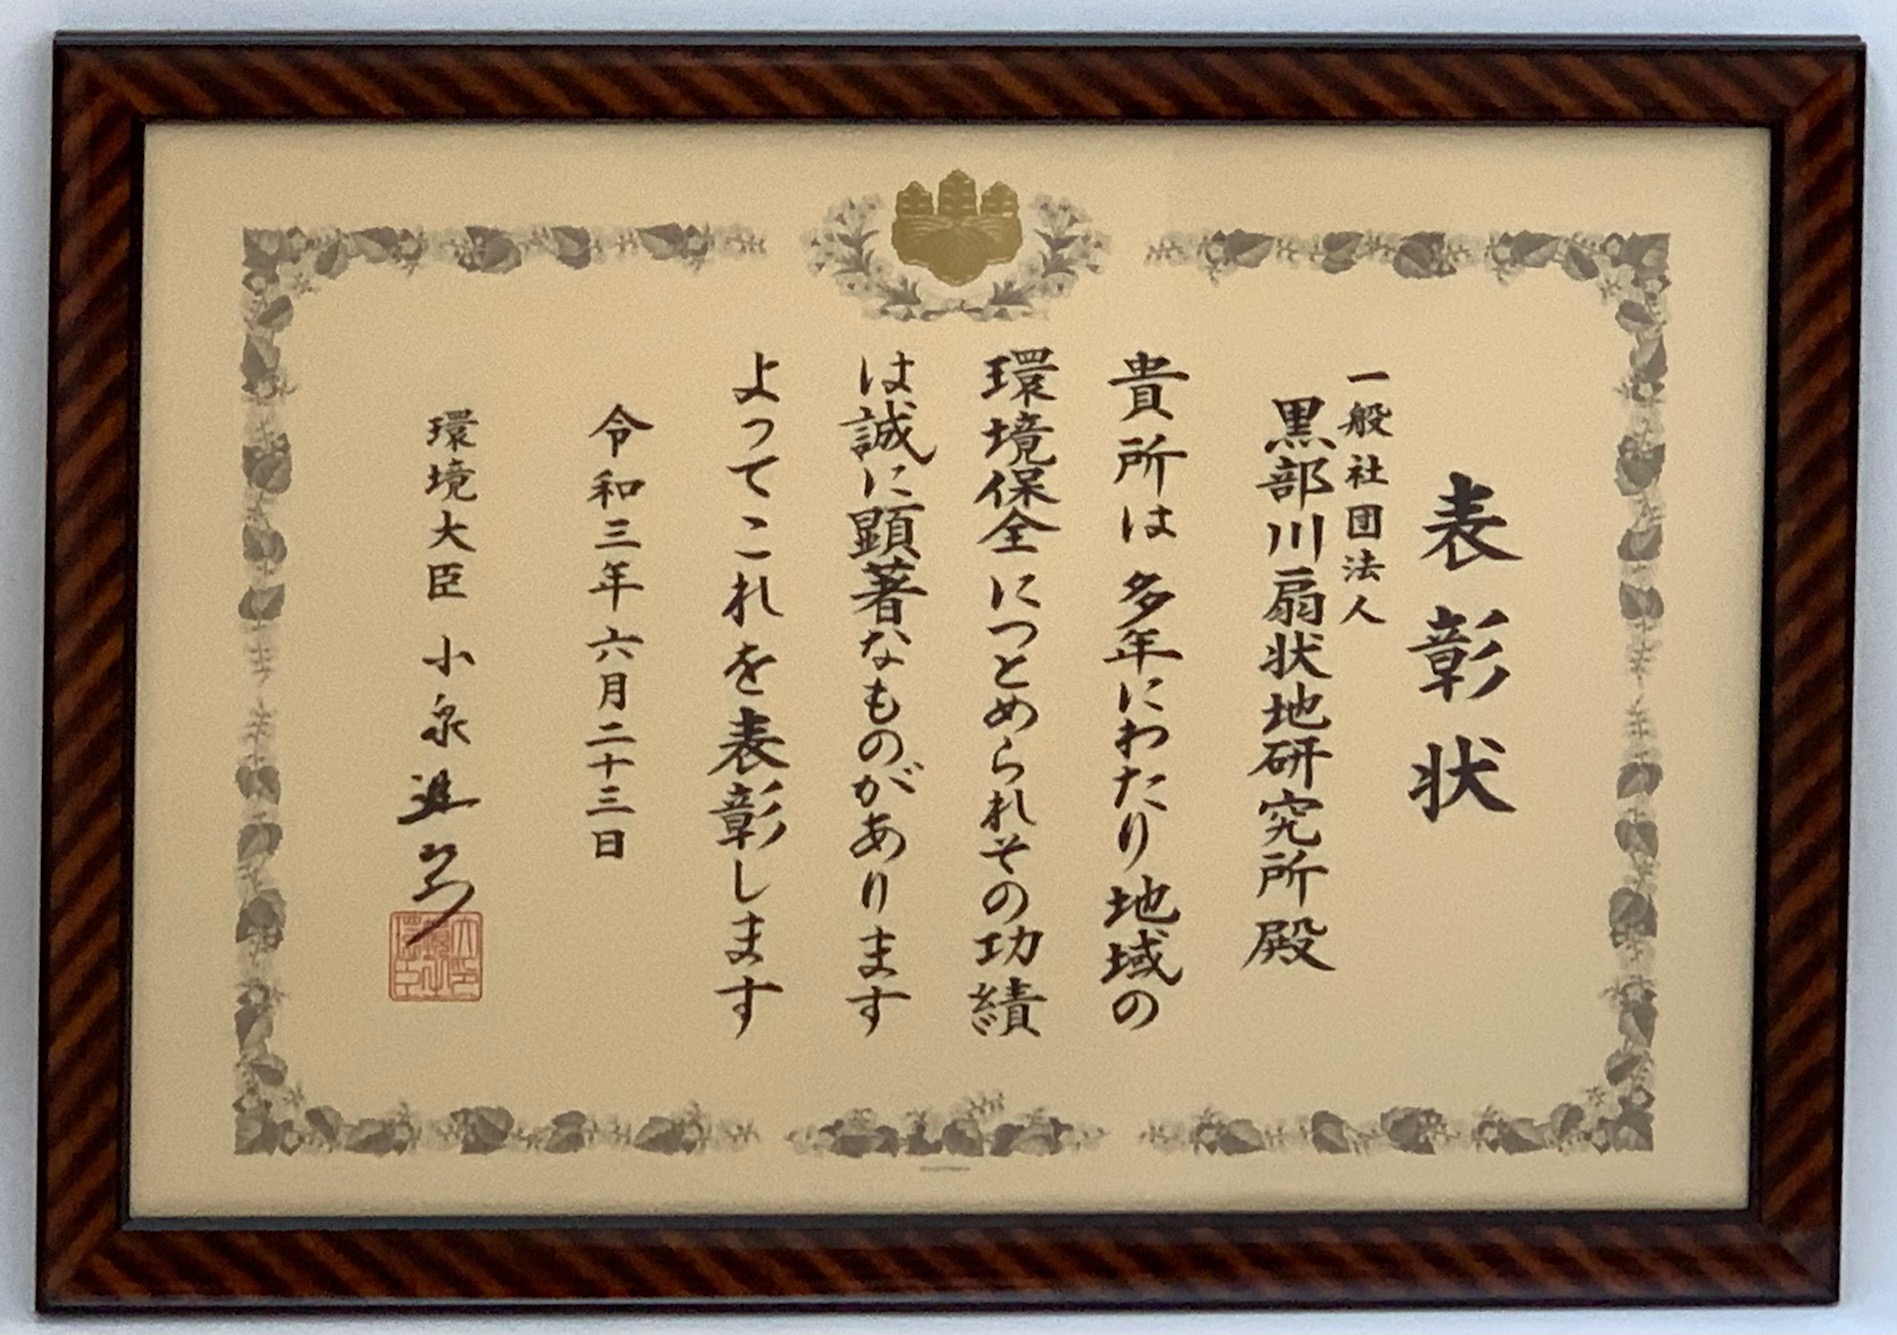 表彰状
一般社団法人
黒部川扇状地研究所殿
貴所は多年にわたり地域の
環境保全につとめられその功績
は誠に顕著なものがあります
よってこれを表彰します
令和三年六月二十三日
環境大臣 小泉進次郎